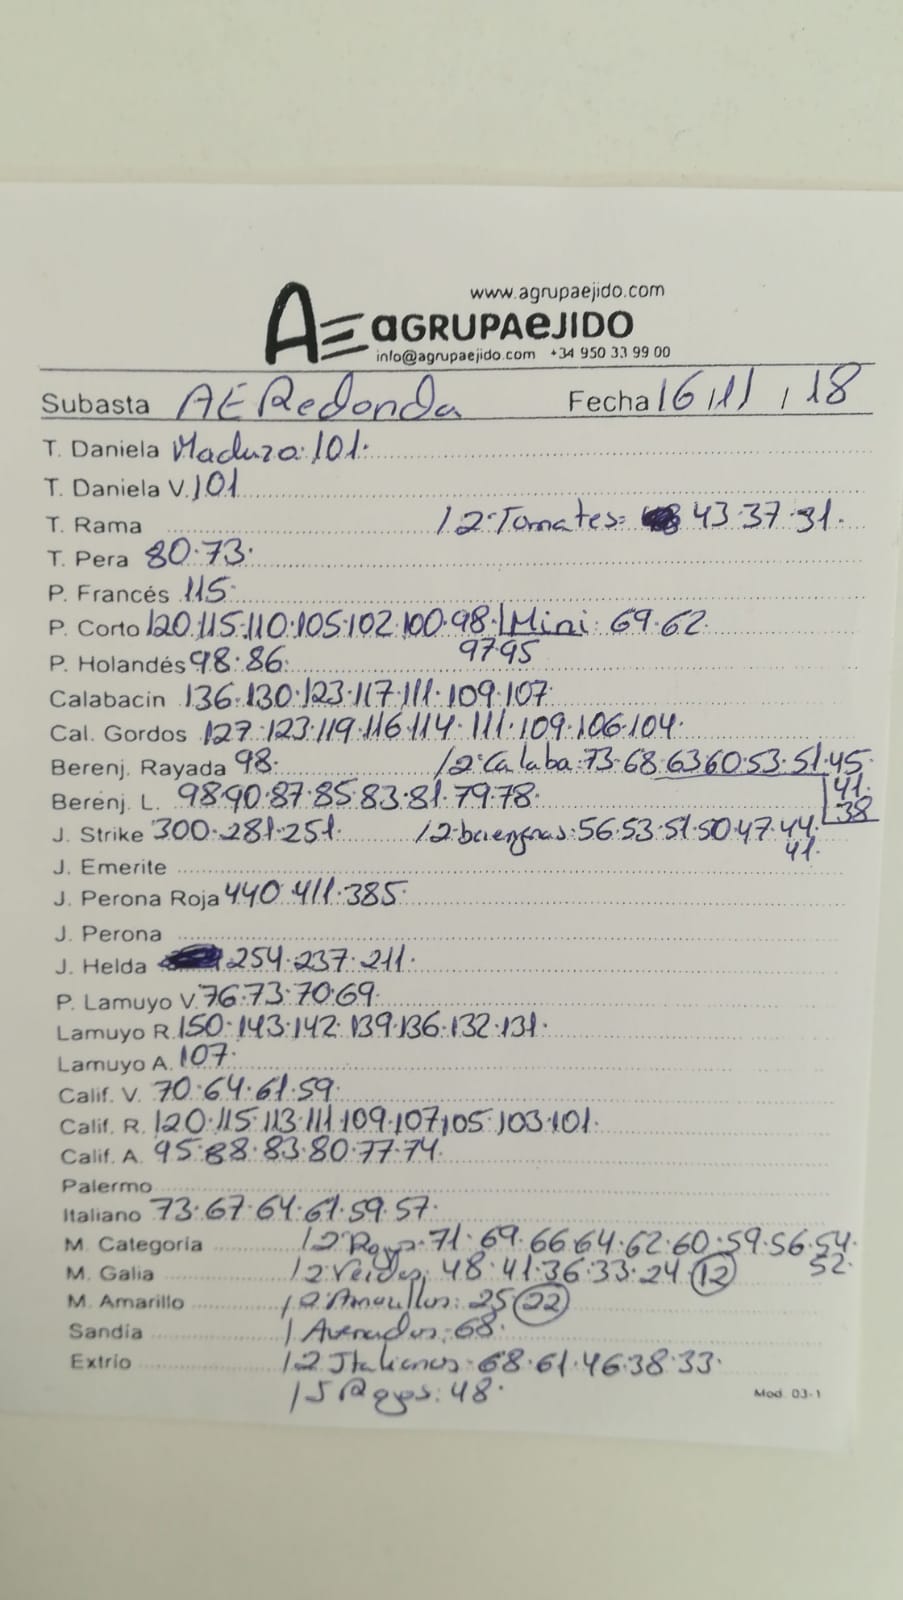 www.agrupaejido.com
AE aGRUPAeJIDO
info@agrupaejido.com +34 950 33 99 00
Subasta AE Redonda Fecha 16/11/18
T. Daniela Maduro: 101.
T. Daniela V. 101
T. Rama /2: Tomates: 43.37.31.
T. Pera 80.73.
P. Francés 115.
P. Corto 120.115.110.105.102.100.98. | Mini: 69.62.
97.95
P. Holandés 98.86.
Calabacín 136.130.123.117.111.109.107.
Cal. Gordos 127.123.119.116.114.111.109.106.104.
Berenj. Rayada 98. /2:Calaba:73.68.63.60.53.51.45.
41.
Berenj. L. 98.90.87.85.83.81.79.78.
38
J. Strike 300.281.251. /2:berengenas:56.53.51.50.47.44.
41.
J. Emerite
J. Perona Roja 440.411.385.
J. Perona
J. Helda 254.237.211.
P. Lamuyo V. 76.73.70.69.
Lamuyo R. 150.143.142.139.136.132.131.
Lamuyo A. 107.
Calif. V. 70.64.61.59.
Calif. R. 120.115.113.111.109.107.105.103.101.
Calif. A. 95.88.83.80.77.74.
Palermo
Italiano 73.67.64.61.59.57.
M. Categoría /2 Rojos.71.69.66.64.62.60.59.56.54.
52.
M. Galia /2 Verdes: 48.41.36.33.24.12
M. Amarillo /2 Amarillos: 25.22
Sandía / Averados: 68.
Extrio /2 Italianos: 68.61.46.38.33.
/5 Rojos: 48.
Mod. 03-1